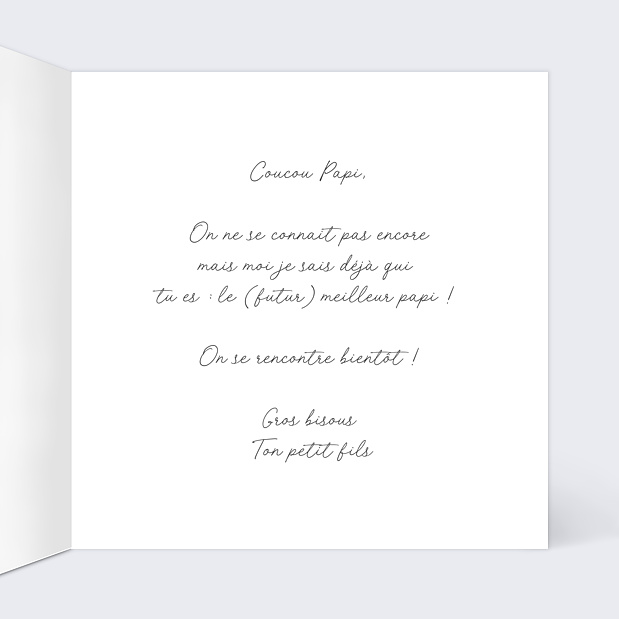 Coucou Papi,
On ne se connaît pas encore
mais moi je sais déjà qui
tu es : le (futur) meilleur papi !
On se rencontre bientôt !
Gros bisous
Ton petit fils